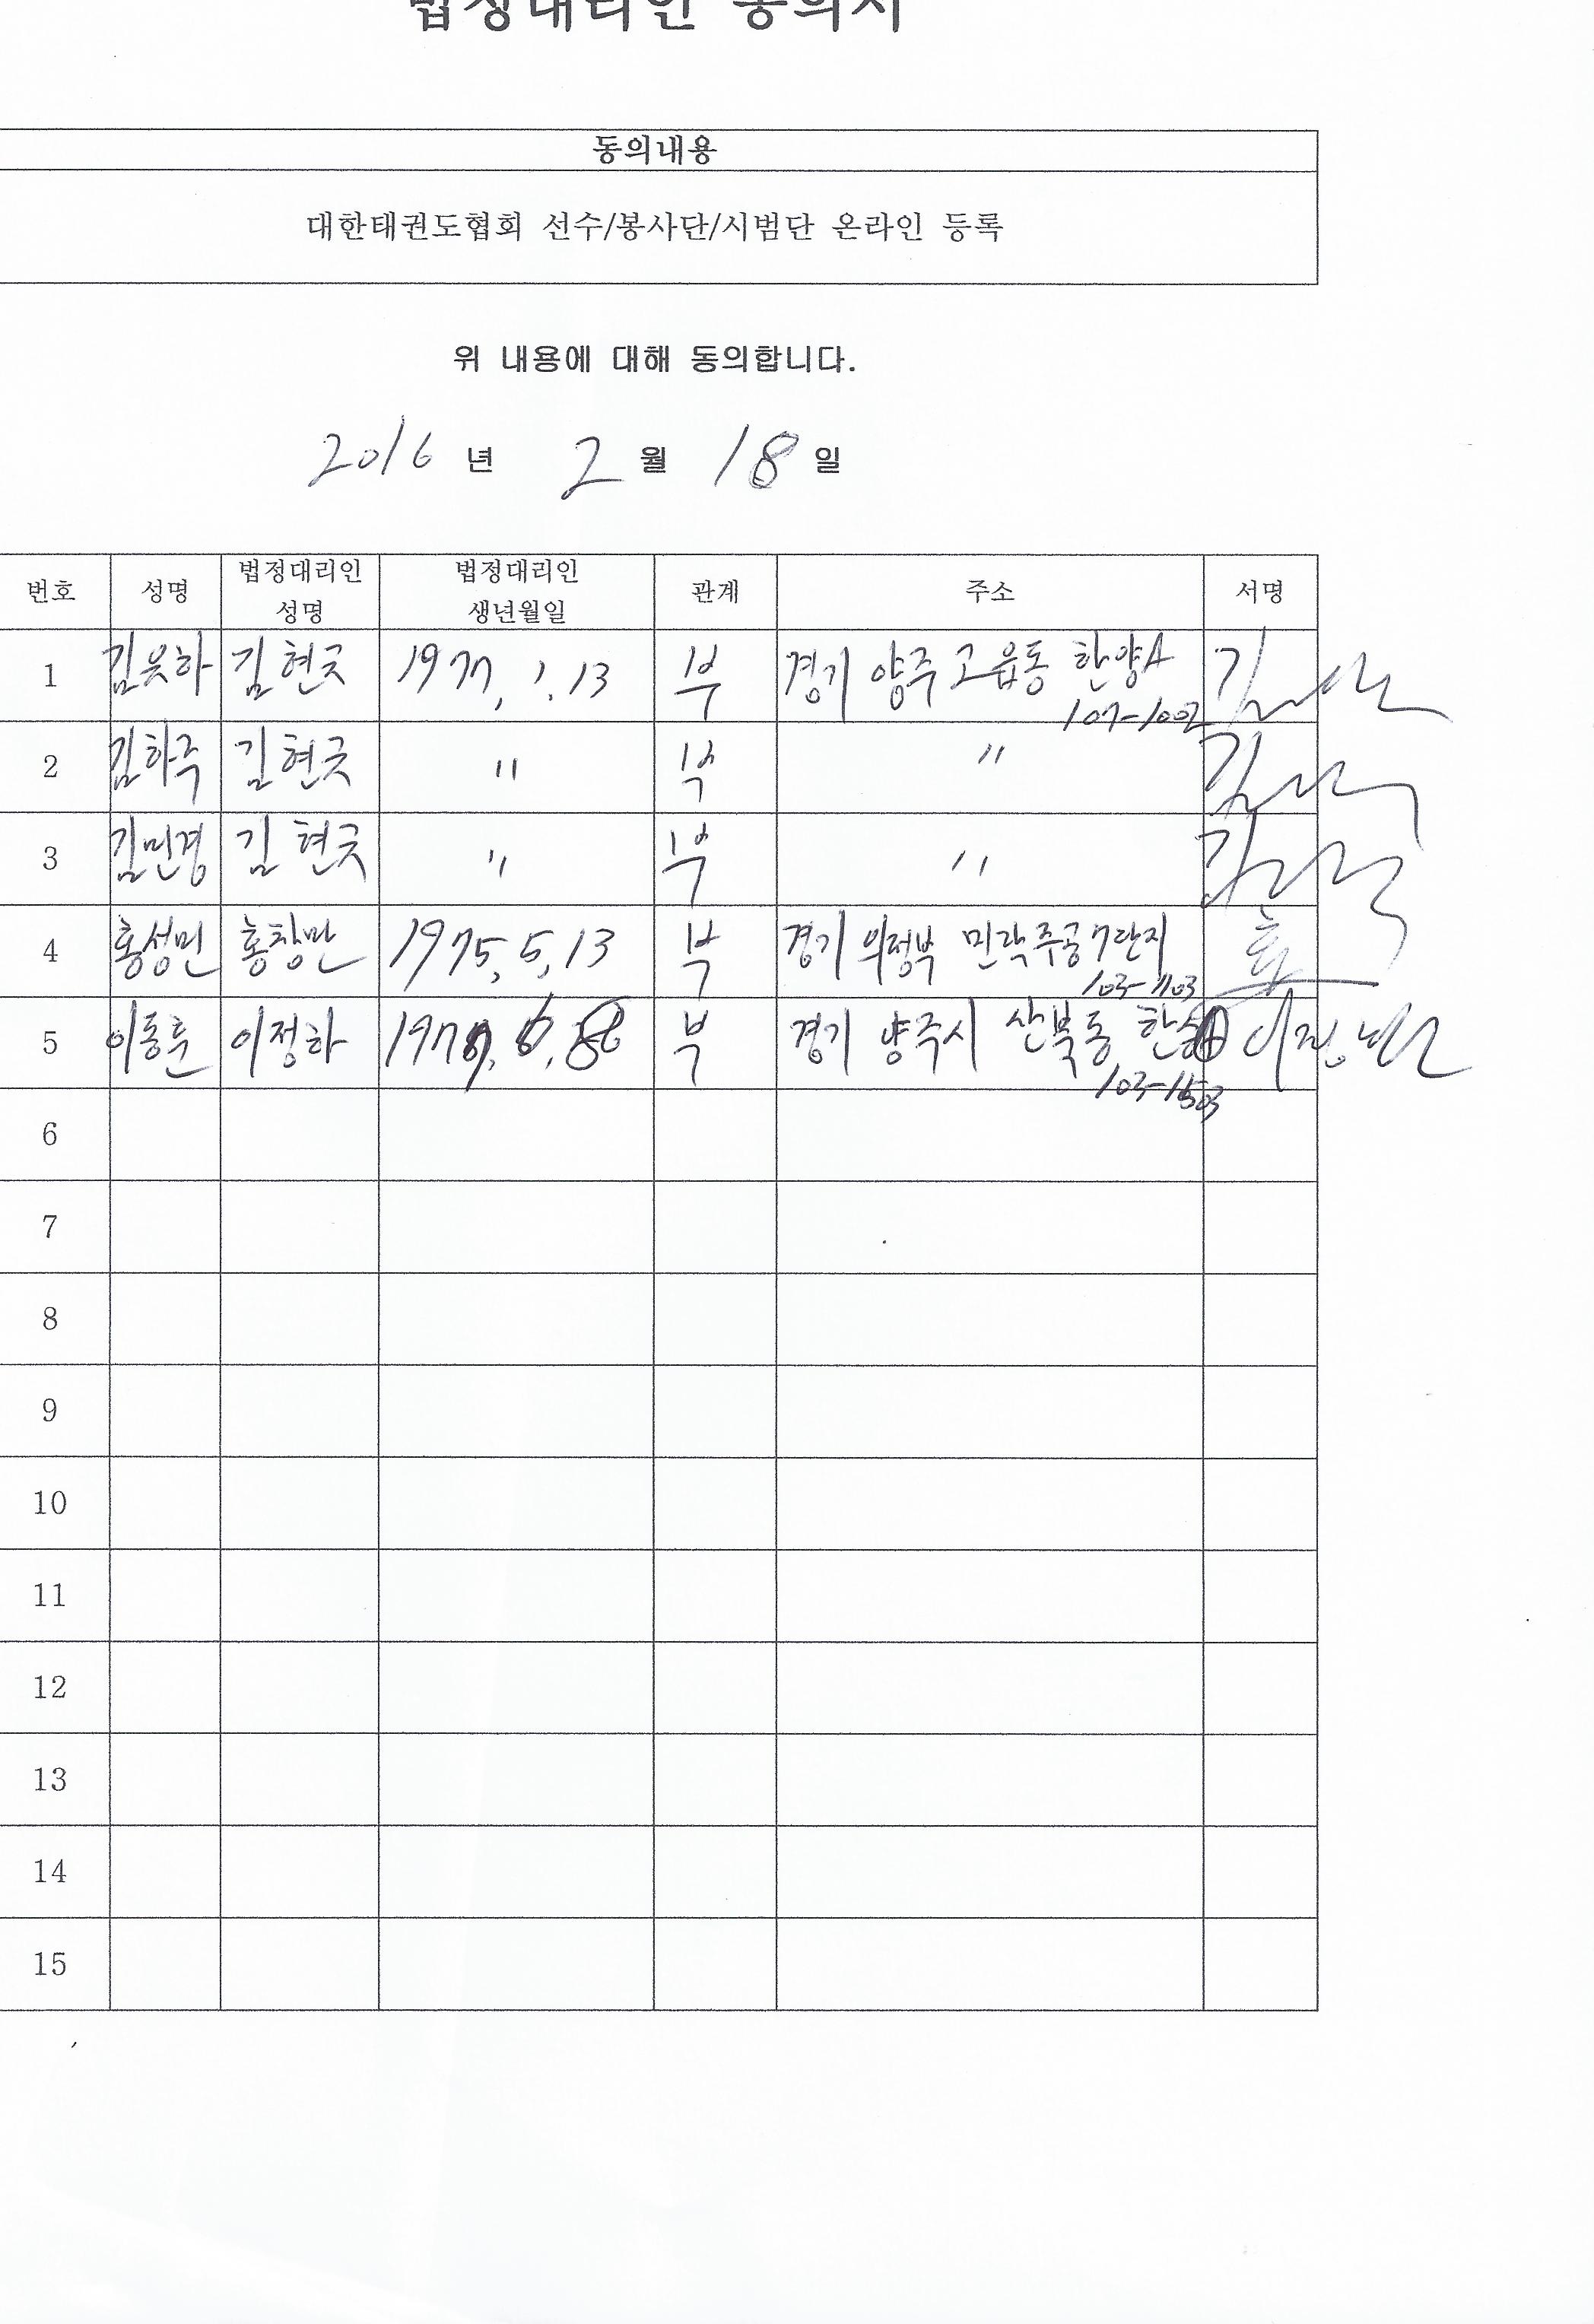 법정대리인 동의서
동의내용
대한태권도협회 선수/봉사단/시범단 온라인 등록
위 내용에 대해 동의합니다.
2016 년 2 월 18 일
번호 성명 법정대리인 성명 법정대리인 생년월일 관계 주소 서명
1 김윤하 김현국 1977. 1. 13 부 경기 양주 고읍동 한양A
107-1002
2 김하주 김현국 〃 부 〃
3 김민경 김현국 〃 부 〃
4 홍성민 홍창만 1975. 5. 13 부 경기 의정부 민락주공7단지
103-1103
5 이동훈 이정하 부 경기 양주시 산북동
103-1503
6
7
8
9
10
11
12
13
14
15